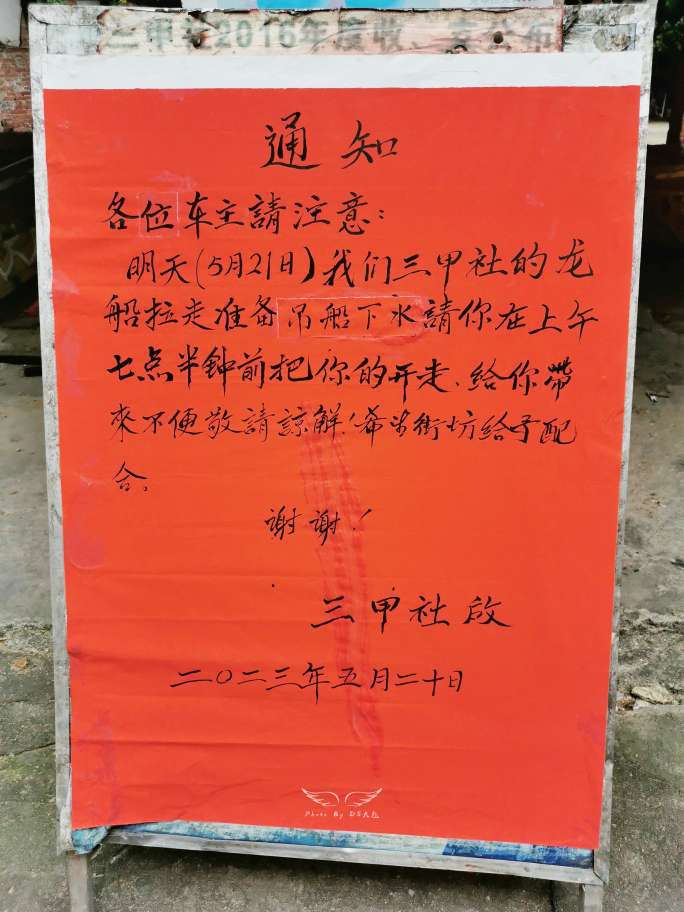 三甲社2016年度收、支公布
通知
各位车主請注意：
明天(5月21日)我们三甲社的龙
船拉走准备吊船下水請你在上午
七点半钟前把你的开走、给你帶
來不便敬請諒解！希望街坊给予配
合。
谢谢！
三甲社啟
二〇二三年五月二十日
Photo By DS大包